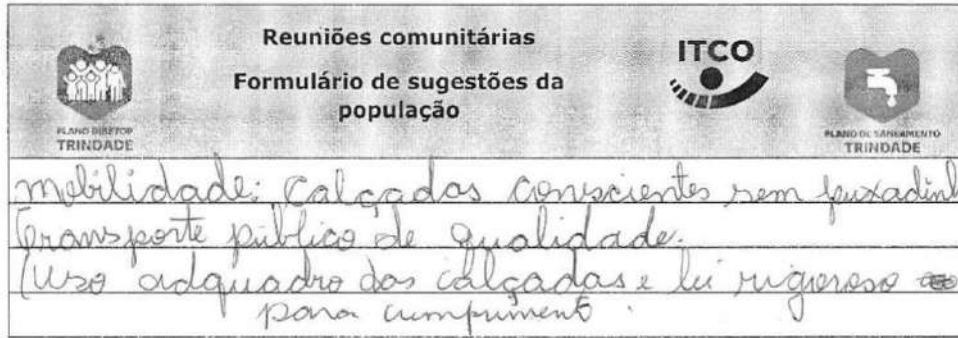 Reuniões comunitárias
Formulário de sugestões da
população
PLANO DIRETOR
TRINDADE
ITCO
PLANO DE SANEAMENTO
TRINDADE
mobilidade: Calçadas conscientes sem puxadinh
Transporte público de qualidade.
(Uso adquadro das calçadas e lei rigoroso
para cumpriment.